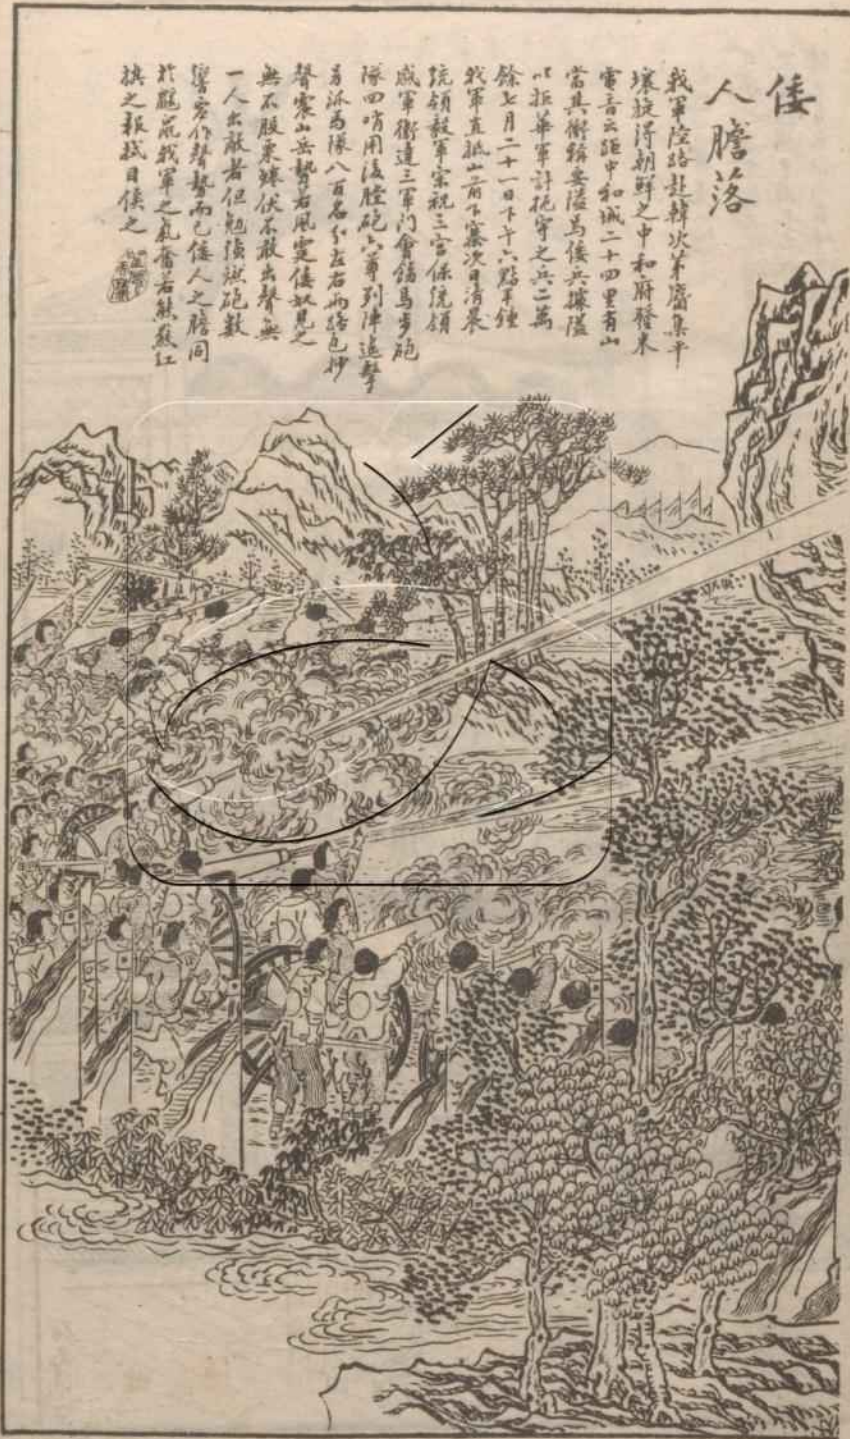 倭
人膽落
我軍陸路赴韓次第麕集平
壤旋得朝鮮之中和府發來
電音云距中和城二十四里有山
當其衝稱要隘為倭兵據隘
以拒華軍計扼守之兵二萬
餘七月二十一日下午六點半鐘
我軍直抵山前下寨次日清晨
統領毅軍宋祝三宮保統領
盛軍衛達三軍門會飭馬步砲
隊四哨用後膛砲六尊列陣遙擊
另派馬隊八百名分左右兩路包抄
聲震山岳勢若風霆倭奴見之
無不股栗蛛伏不敢出聲無
一人出敵者但勉償燃砲數
響容作聲勢而已倭人之膽同
於鼷鼠我軍之氣奮若熊羆紅
旗之報拭目俟之